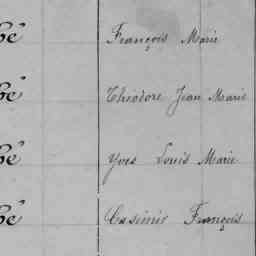 bé François Marie
bé Théodore Jean Marie
bé Yves Louis Marie
bé Casimir François